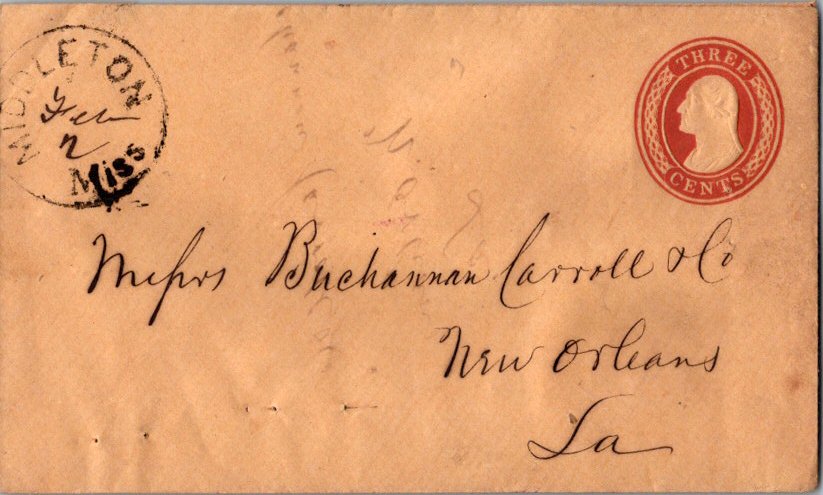 MIDDLETON
Feb
2
Miss
THREE
CENTS
Messrs Buchannan Carroll & Co
New Orleans
La